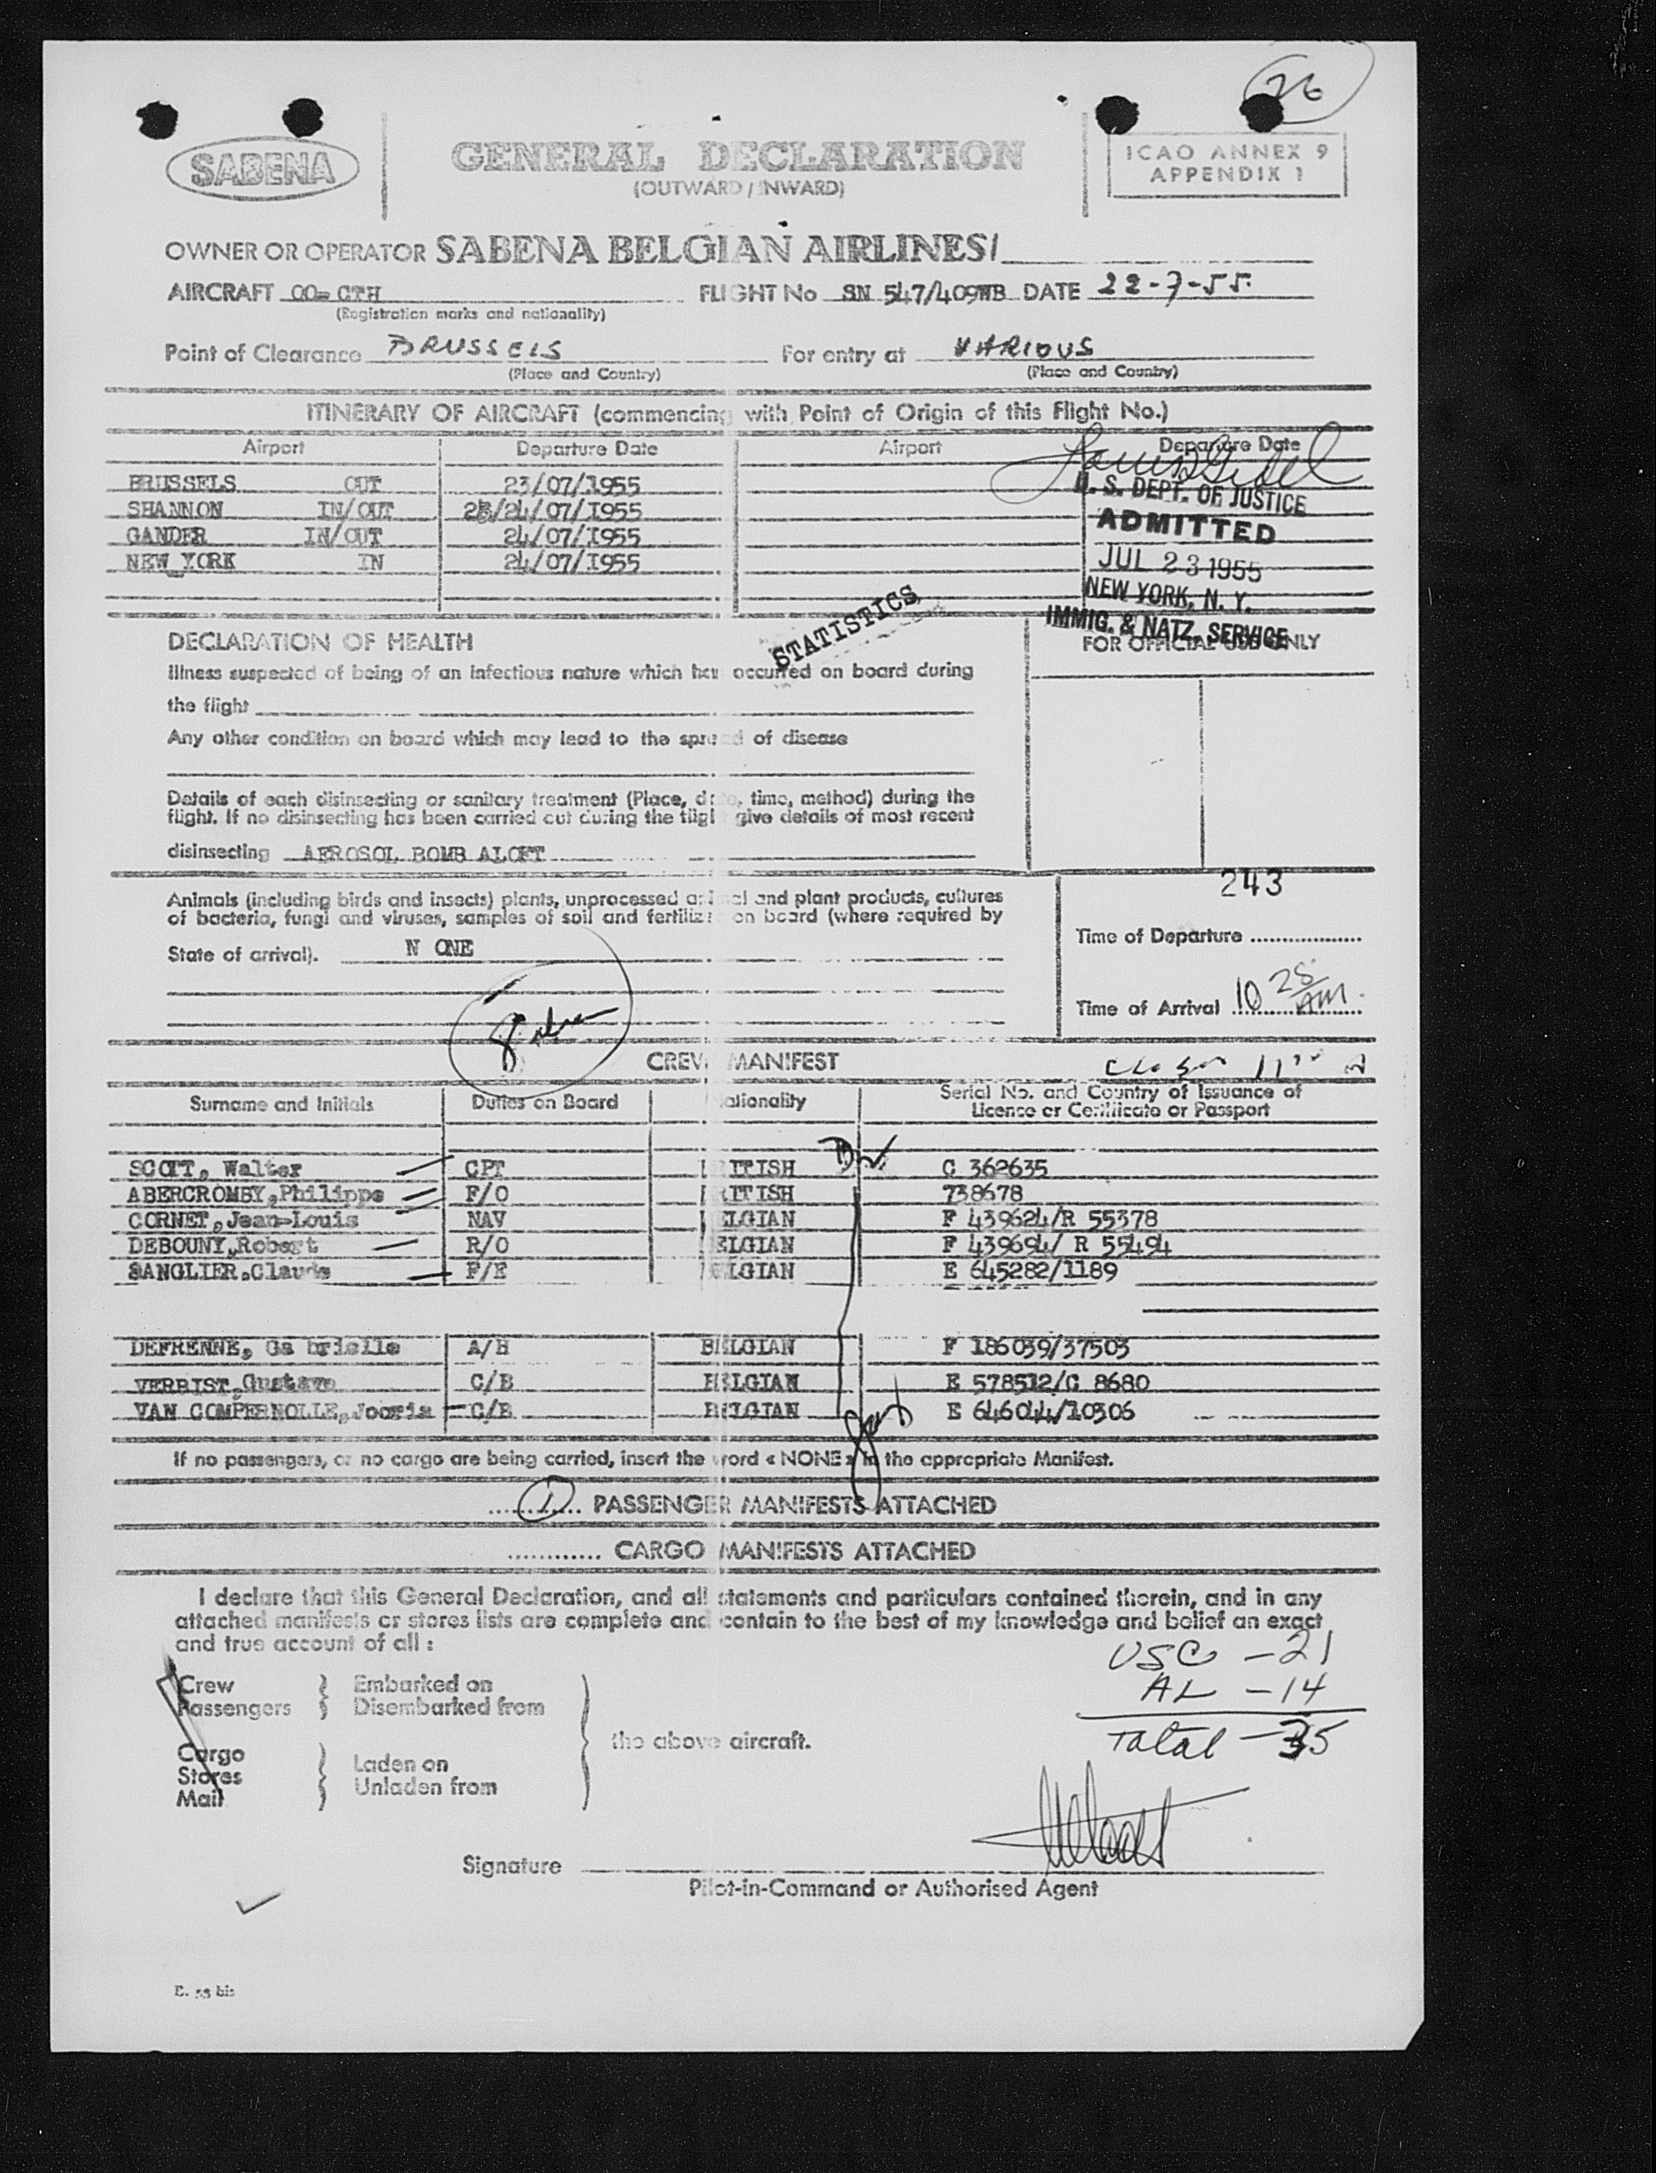 26
SABENA
GENERAL DECLARATION
(OUTWARD / INWARD)
ICAO ANNEX 9
APPENDIX 1
OWNER OR OPERATOR SABENA BELGIAN AIRLINES/
AIRCRAFT OO-CTH FLIGHT No SN 547/409WB DATE 22-7-55.
(Registration marks and nationality)
Point of Clearance BRUSSELS For entry at VARIOUS
(Place and Country) (Place and Country)
ITINERARY OF AIRCRAFT (commencing with Point of Origin of this Flight No.)
Airport Departure Date Airport Departure Date
BRUSSELS OUT 23/07/1955
SHANNON IN/OUT 23/24/07/1955
GANDER IN/OUT 24/07/1955
NEW YORK IN 24/07/1955
U. S. DEPT. OF JUSTICE
ADMITTED
JUL 23 1955
NEW YORK, N. Y.
IMMIG. & NATZ. SERVICE
STATISTICS
DECLARATION OF HEALTH
FOR OFFICIAL USE ONLY
Illness suspected of being of an infectious nature which has occurred on board during
the flight
Any other condition on board which may lead to the spread of disease
Details of each disinsecting or sanitary treatment (Place, date, time, method) during the
flight. If no disinsecting has been carried out during the flight give details of most recent
disinsecting AEROSOL BOMB ALOFT
243
Animals (including birds and insects) plants, unprocessed animal and plant products, cultures
of bacteria, fungi and viruses, samples of soil and fertilizer on board (where required by
State of arrival). N ONE
Time of Departure
Time of Arrival 10 25 AM.
CREW MANIFEST
Surname and Initials Duties on Board Nationality Serial No. and Country of Issuance of
Licence or Certificate or Passport
SCOTT, Walter CPT BRITISH C 362635
ABERCROMBY, Philippe F/O BRITISH 738678
CORNET, Jean-Louis NAV BELGIAN F 439624/R 55378
DEBOUNY, Robert R/O BELGIAN F 439694/ R 55494
SANGLIER, Claude F/E BELGIAN E 645282/1189
DEFRENNE, Ga brielle A/H BELGIAN F 186039/37503
VERBIST, Gustave C/B BELGIAN E 578512/C 8680
VAN COMPERNOLLE, Jooris C/B BELGIAN E 646044/10306
If no passengers, or no cargo are being carried, insert the word « NONE » in the appropriate Manifest.
1 PASSENGER MANIFESTS ATTACHED
............ CARGO MANIFESTS ATTACHED
I declare that this General Declaration, and all statements and particulars contained therein, and in any
attached manifests or stores lists are complete and contain to the best of my knowledge and belief an exact
and true account of all :
Crew Embarked on
Passengers Disembarked from
the above aircraft.
Cargo Laden on
Stores Unladen from
Mail
USC - 21
AL - 14
Total - 35
Signature
Pilot-in-Command or Authorised Agent